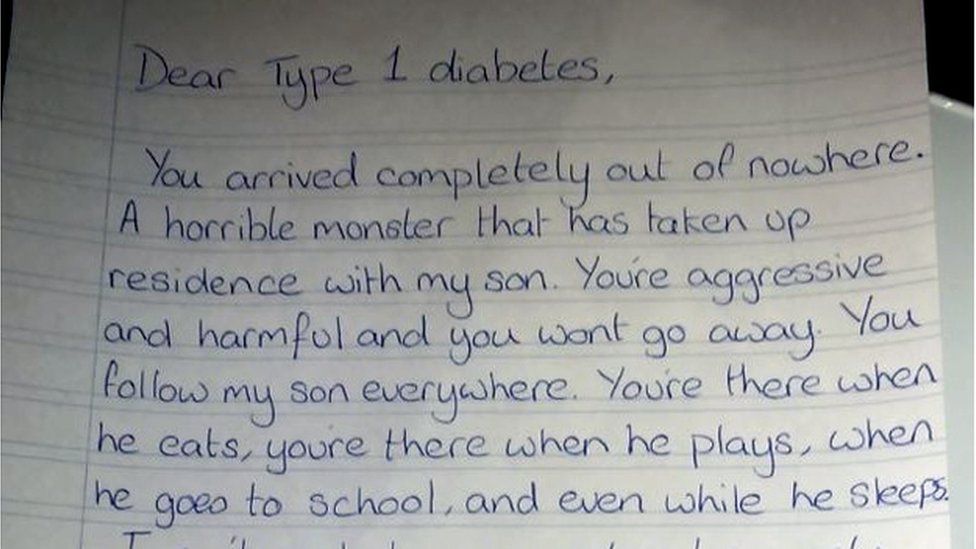 Dear Type 1 diabetes,
You arrived completely out of nowhere.
A horrible monster that has taken up
residence with my son. You're aggressive
and harmful and you wont go away. You
follow my son everywhere. You're there when
he eats, you're there when he plays, when
he goes to school, and even while he sleeps.